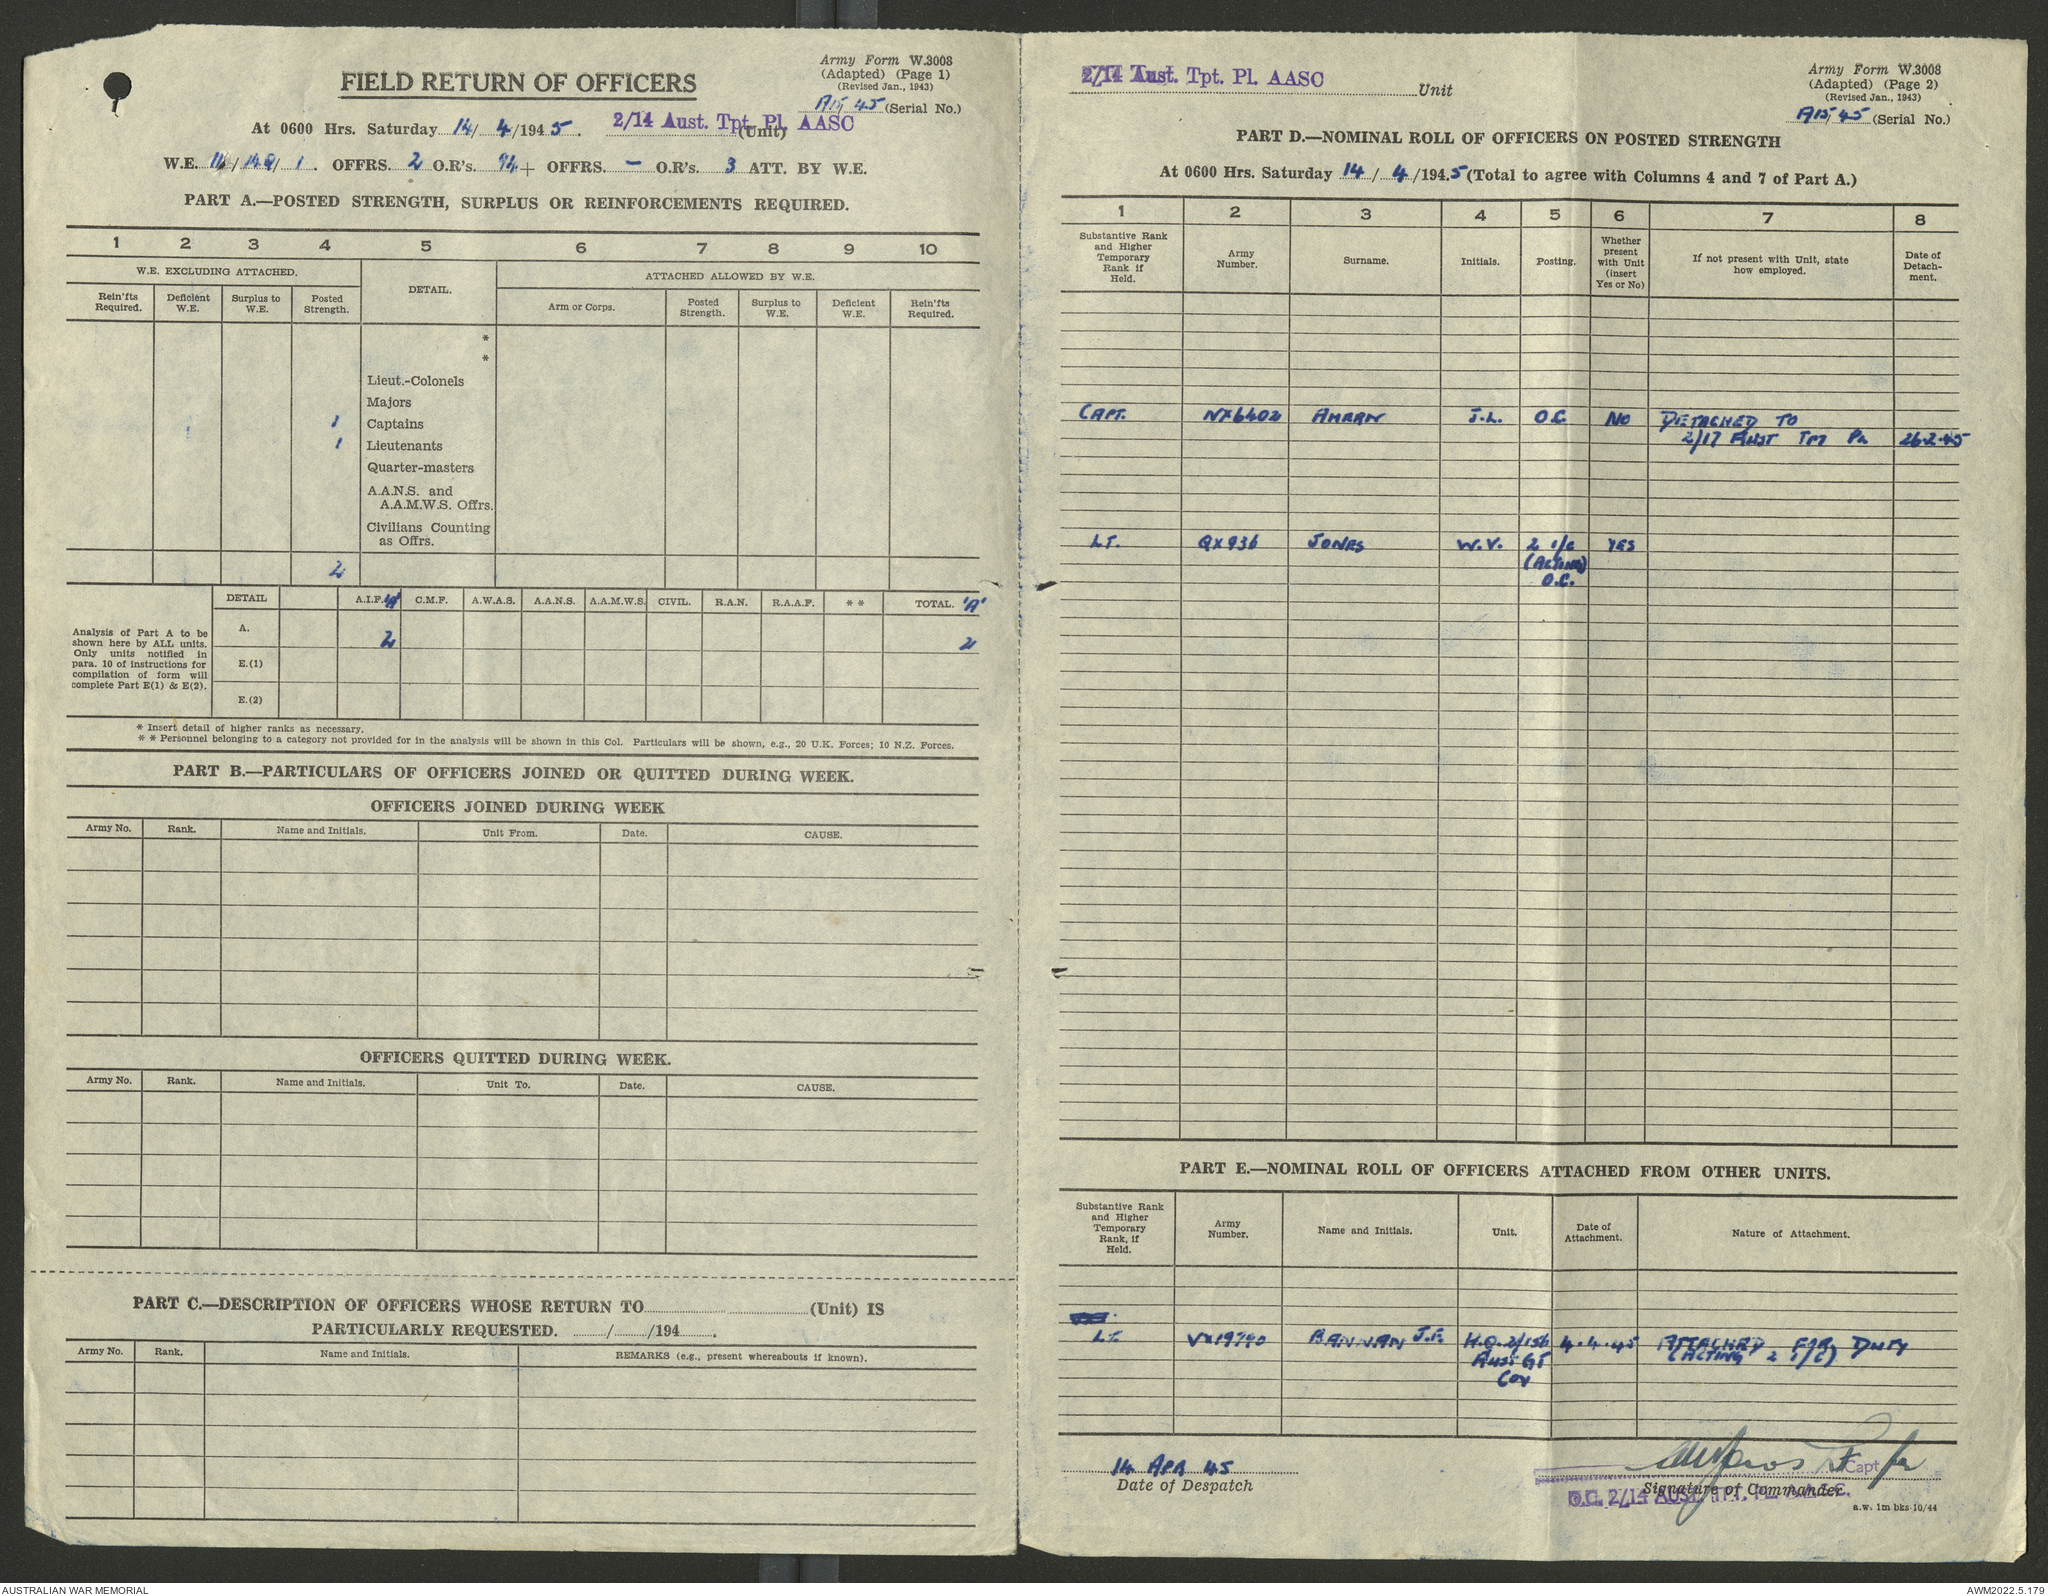 Army Form W.3008
(Adapted) (Page 1)
(Revised Jan., 1943)
FIELD RETURN OF OFFICERS
A15/45 (Serial No.)
At 0600 Hrs. Saturday 14/4/1945. 2/14 Aust. Tpt. Pl. AASC (Unit)
W.E. / / 1. OFFRS. 2 O.R's. 94 + OFFRS. — O.R's. 3 ATT. BY W.E.
PART A.—POSTED STRENGTH, SURPLUS OR REINFORCEMENTS REQUIRED.
1 2 3 4 5 6 7 8 9 10
W.E. EXCLUDING ATTACHED. DETAIL. ATTACHED ALLOWED BY W.E.
Rein'fts Required. Deficient W.E. Surplus to W.E. Posted Strength. Arm or Corps. Posted Strength. Surplus to W.E. Deficient W.E. Rein'fts Required.
*
*
Lieut.-Colonels
Majors
1 Captains
1 Lieutenants
Quarter-masters
A.A.N.S. and
A.A.M.W.S. Offrs.
Civilians Counting
as Offrs.
2
DETAIL A.I.F. 'A' C.M.F. A.W.A.S. A.A.N.S. A.A.M.W.S. CIVIL. R.A.N. R.A.A.F. * * TOTAL. 'A'
Analysis of Part A to be
shown here by ALL units.
Only units notified in
para. 10 of instructions for
compilation of form will
complete Part E(1) & E(2).
A. 2 2
E.(1)
E.(2)
* Insert detail of higher ranks as necessary.
* * Personnel belonging to a category not provided for in the analysis will be shown in this Col. Particulars will be shown, e.g., 20 U.K. Forces; 10 N.Z. Forces.
PART B.—PARTICULARS OF OFFICERS JOINED OR QUITTED DURING WEEK.
OFFICERS JOINED DURING WEEK
Army No. Rank. Name and Initials. Unit From. Date. CAUSE.
OFFICERS QUITTED DURING WEEK.
Army No. Rank. Name and Initials. Unit To. Date. CAUSE.
PART C.—DESCRIPTION OF OFFICERS WHOSE RETURN TO (Unit) IS
PARTICULARLY REQUESTED. / /194 .
Army No. Rank. Name and Initials. REMARKS (e.g., present whereabouts if known).
2/14 Aust. Tpt. Pl. AASC Unit
Army Form W.3008
(Adapted) (Page 2)
(Revised Jan., 1943)
A15/45 (Serial No.)
PART D.—NOMINAL ROLL OF OFFICERS ON POSTED STRENGTH
At 0600 Hrs. Saturday 14/4/1945 (Total to agree with Columns 4 and 7 of Part A.)
1 2 3 4 5 6 7 8
Substantive Rank and Higher Temporary Rank if Held. Army Number. Surname. Initials. Posting. Whether present with Unit (insert Yes or No) If not present with Unit, state how employed. Date of Detach-ment.
CAPT. NX6402 AHEARN J.L. O.C. NO DETACHED TO
2/17 AUST TPT PL 26.2.45
LT. QX936 JONES W.V. 2 i/c YES
(ACTING)
O.C.
PART E.—NOMINAL ROLL OF OFFICERS ATTACHED FROM OTHER UNITS.
Substantive Rank and Higher Temporary Rank, if Held. Army Number. Name and Initials. Unit. Date of Attachment. Nature of Attachment.
LT. BANNAN J.F. H.Q. 2/156 4.4.45 ATTACHED FOR DUTY
AUST GT (ACTING 2 i/c)
COY
14 APR 45
Date of Despatch
Capt
Signature of Commander.
O.C. 2/14 AUST. TPT. PL.
a.w. 1m bks 10/44
AUSTRALIAN WAR MEMORIAL
AWM2022.5.179